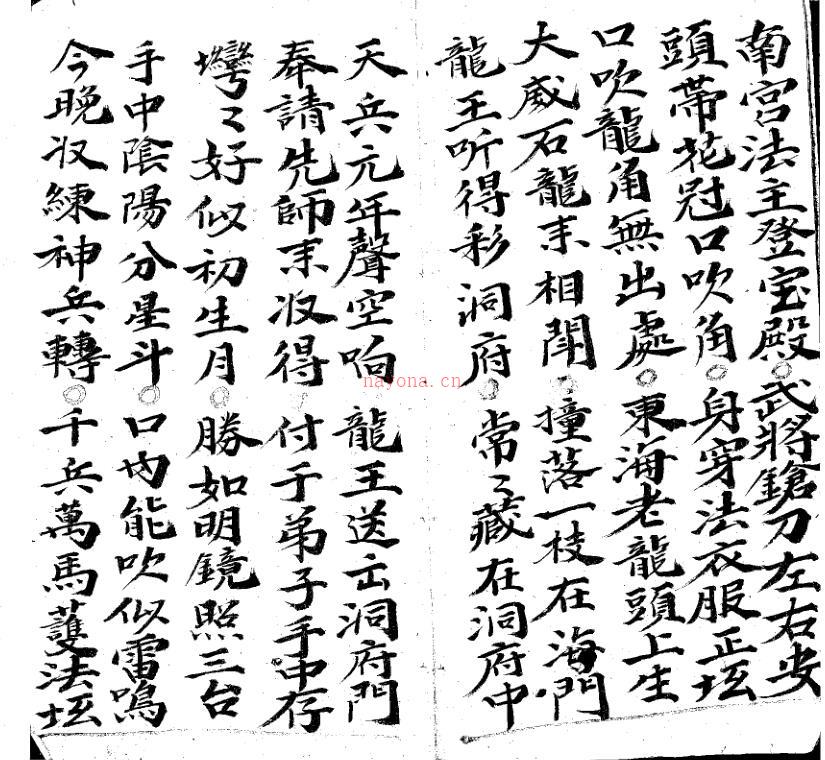 南宫法主登宝殿○武將鎗刀左右安
頭帶花冠口吹角○身穿法衣服正坛
口吹龍角無出處○東海老龍頭上生
大威石龍来相闘○撞落一枝在海門
龍王听得彩洞府○常〻藏在洞府中
天兵元年聲空响 龍王送出洞府門
奉請先師来收得 付于弟子手中存
彎〻好似初生月○勝如明鏡照三台
手中陰陽分星斗○口内能吹似雷鳴
今晚收練神兵轉○千兵萬馬護法坛
nayona.cn